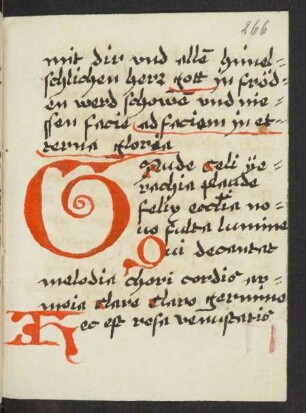 266
mit dir vnd allē himel-
schlichen herz gott in fröd-
en werd schowē vnd nie-
ssen facie ad faciem in et-
terna gloria
Gaude celi ye-
rachia plaude
felix eccl̄ia no-
uo fulta lumine
Qui decantat
melodia chori cordis ar-
monia clare claro germine
Hec est rosa venustatis